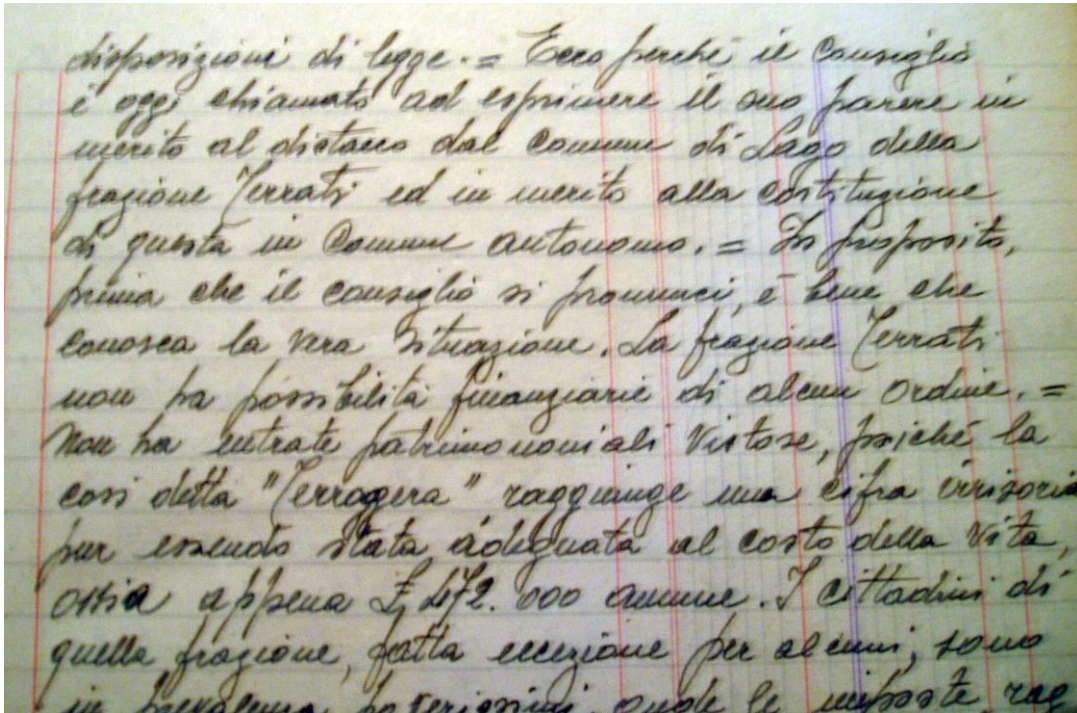 disposizioni di legge. = Ecco perché il Consiglio
è oggi chiamato ad esprimere il suo parere in
merito al distacco dal Comune di Lago della
frazione Terrati ed in merito alla costituzione
di questa in Comune autonomo. = In proposito,
prima che il consiglio si pronunci, è bene che
conosca la vera situazione. La frazione Terrati
non ha possibilità finanziarie di alcun ordine. =
Non ha entrate patrimononiali vistose, poiché la
così detta "Terragera" raggiunge una cifra irrisoria
pur essendo stata adeguata al costo della vita,
ossia appena £ 472.000 annue. I cittadini di
quella frazione, fatta eccezione per alcuni, sono
in prevalenza poverissimi, onde le imposte rag